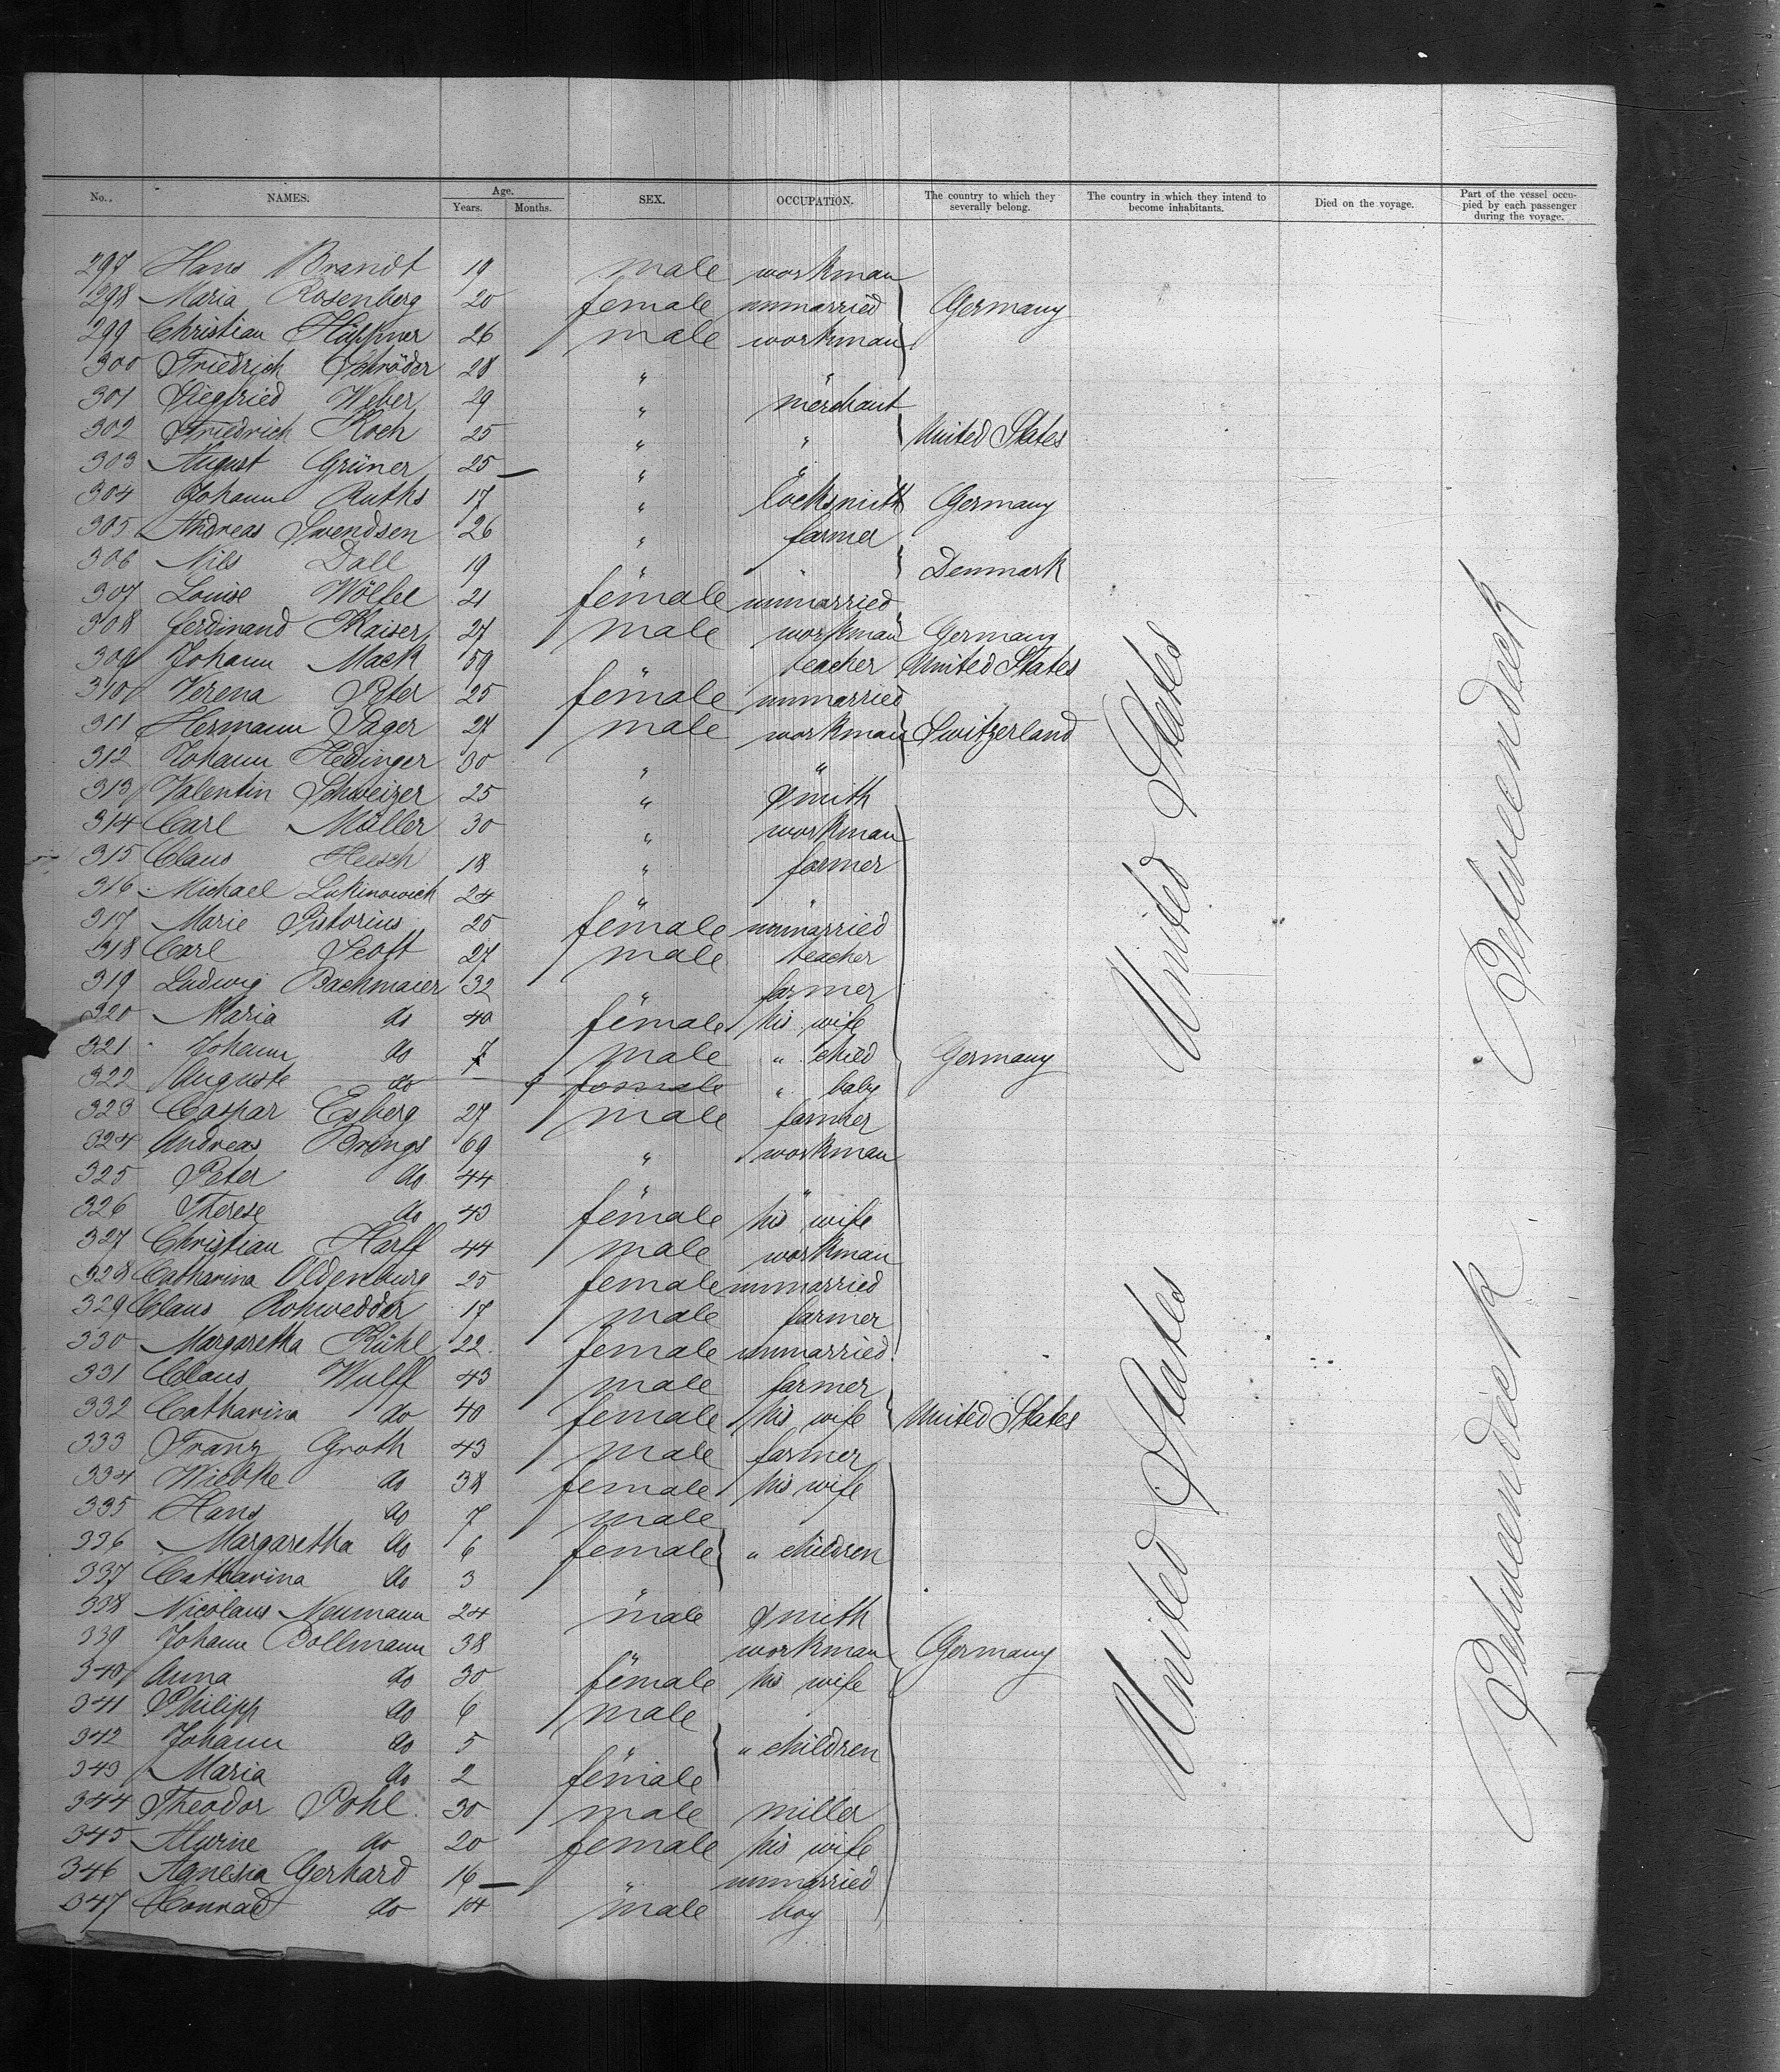 No. NAMES. Age. Years. Months. SEX. OCCUPATION. The country to which they severally belong. The country in which they intend to become inhabitants. Died on the voyage. Part of the vessel occupied by each passenger during the voyage.
297 Hans Brandt 19 male workman
298 Maria Rosenberg 20 female unmarried Germany
299 Christian 26 male workman
300 Friedrich Schröder 28 " "
301 Siegfried Weber 29 " merchant
302 Friedrich Koch 25 " " United States
303 August Grüner 25 " "
304 Johann Ruths 17 " locksmith Germany
305 Andreas Swendsen 26 " farmer
306 Nils Dall 19 " " Denmark
307 Louise Wölfel 21 female unmarried
308 Ferdinand Kaiser 27 male workman Germany
309 Johann Mack 59 " teacher United States
310 Verena Peter 25 female unmarried
311 Hermann Sager 27 male workman Switzerland
312 Johann Hedinger 30 " "
313 Valentin Schweizer 25 " smith
314 Carl Müller 30 " workman
315 Claus Heesch 18 " farmer
316 Michael Lukinowich 24 " "
317 Marie Pistorius 25 female unmarried
318 Carl 27 male teacher
319 Ludwig Bachmaier 32 " farmer
320 Maria do 40 female his wife
321 Johann do 7 male " child Germany
322 Auguste do female " baby
323 Caspar Esberg 27 male farmer
324 Andreas Brings 69 " workman
325 Peter do 44 " "
326 Therese do 43 female his wife
327 Christian Harff 44 male workman
328 Catharina Oldenburg 25 female unmarried
329 Claus Rohwedder 17 male farmer
330 Margaretha Kühl 22 female unmarried
331 Claus Wulff 43 male farmer
332 Catharina do 40 female his wife United States
333 Franz Groth 43 male farmer
334 Wiebke do 38 female his wife
335 Hans do 7 male
336 Margaretha do 6 female " children
337 Catharina do 3 "
338 Nicolaus Neumann 24 male smith
339 Johann Bollmann 38 " workman Germany
340 Anna do 30 female his wife
341 Philipp do 6 male
342 Johann do 5 " " children
343 Maria do 2 female
344 Theodor Pohl 30 male miller
345 do 20 female his wife
346 Agnesia Gerhard 16 " unmarried
347 Conrad do 14 male boy
United States
United States
Betweendeck
Betweendeck